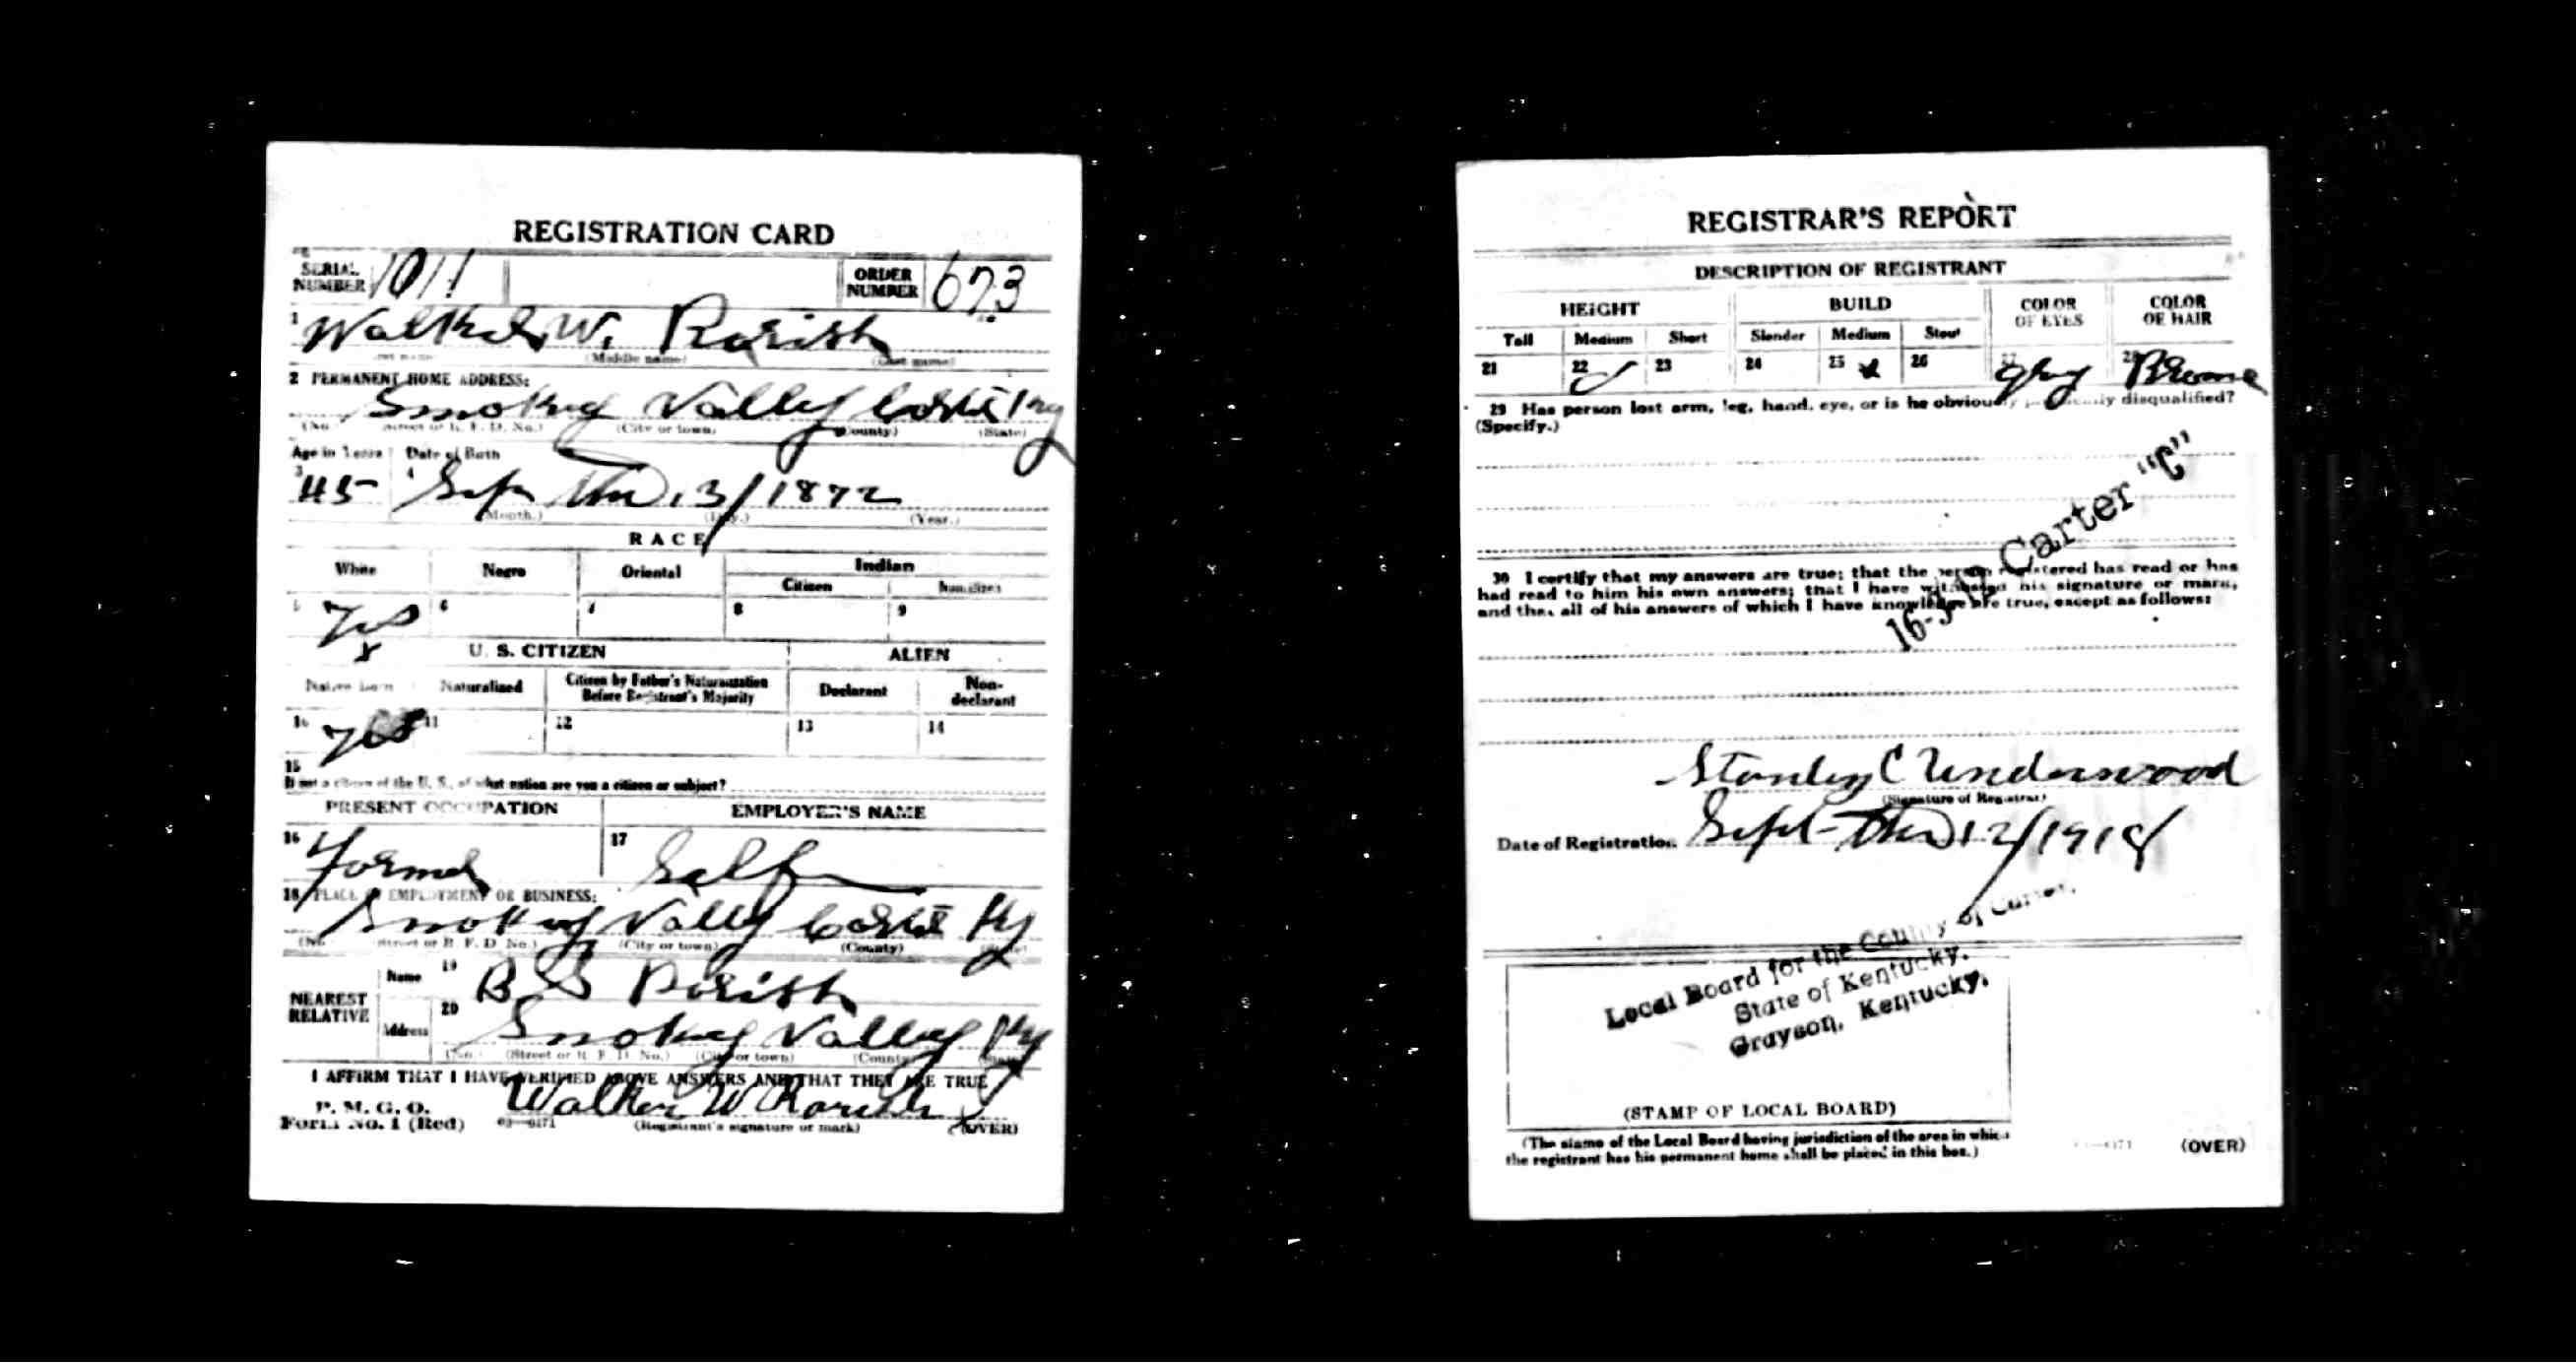 REGISTRATION CARD
SERIAL NUMBER 1011
ORDER NUMBER 673
1 Walker W. Parish
(Middle name) (Last name)
2 PERMANENT HOME ADDRESS:
Smokey Valley Ky
(No.) (Street or R. F. D. No.) (City or town) (County) (State)
Age in Years Date of Birth
3 45 4 13/1872
(Month.) (Day.) (Year.)
RACE
White Negro Oriental Indian
Citizen Noncitizen
5 Yes 6 7 8 9
x
U. S. CITIZEN ALIEN
Native Born Naturalized Citizen by Father's Naturalization Before Registrant's Majority Declarant Non-declarant
10 Yes 11 12 13 14
15
If not a citizen of the U. S., of what nation are you a citizen or subject?
PRESENT OCCUPATION EMPLOYER'S NAME
16 17 Self
18 PLACE OF EMPLOYMENT OR BUSINESS:
Smokey Vally Ky
(No.) (Street or R. F. D. No.) (City or town) (County) (State)
NEAREST RELATIVE
Name 19 B S Parish
Address 20 Smokey Valley Ky
(No.) (Street or R. F. D. No.) (City or town) (County) (State)
I AFFIRM THAT I HAVE VERIFIED ABOVE ANSWERS AND THAT THEY ARE TRUE
P. M. G. O.
Form No. 1 (Red) 03—6171 Walker W Parish
(Registrant's signature or mark) (OVER)
REGISTRAR'S REPORT
DESCRIPTION OF REGISTRANT
HEIGHT BUILD COLOR OF EYES COLOR OF HAIR
Tall Medium Short Slender Medium Stout
21 22 23 24 25 26 27 28
29 Has person lost arm, leg, hand, eye, or is he obviously physically disqualified?
(Specify.)
16-3-12 Carter "C"
30 I certify that my answers are true; that the person registered has read or has
had read to him his own answers; that I have witnessed his signature or mark,
and that all of his answers of which I have knowledge are true, except as follows:
Stanley C Underwood
(Signature of Registrar)
Date of Registration Sept 12/1918
Local Board for the County of Carter,
State of Kentucky.
Grayson, Kentucky.
(STAMP OF LOCAL BOARD)
(The stamp of the Local Board having jurisdiction of the area in which
the registrant has his permanent home shall be placed in this box.)
(OVER)